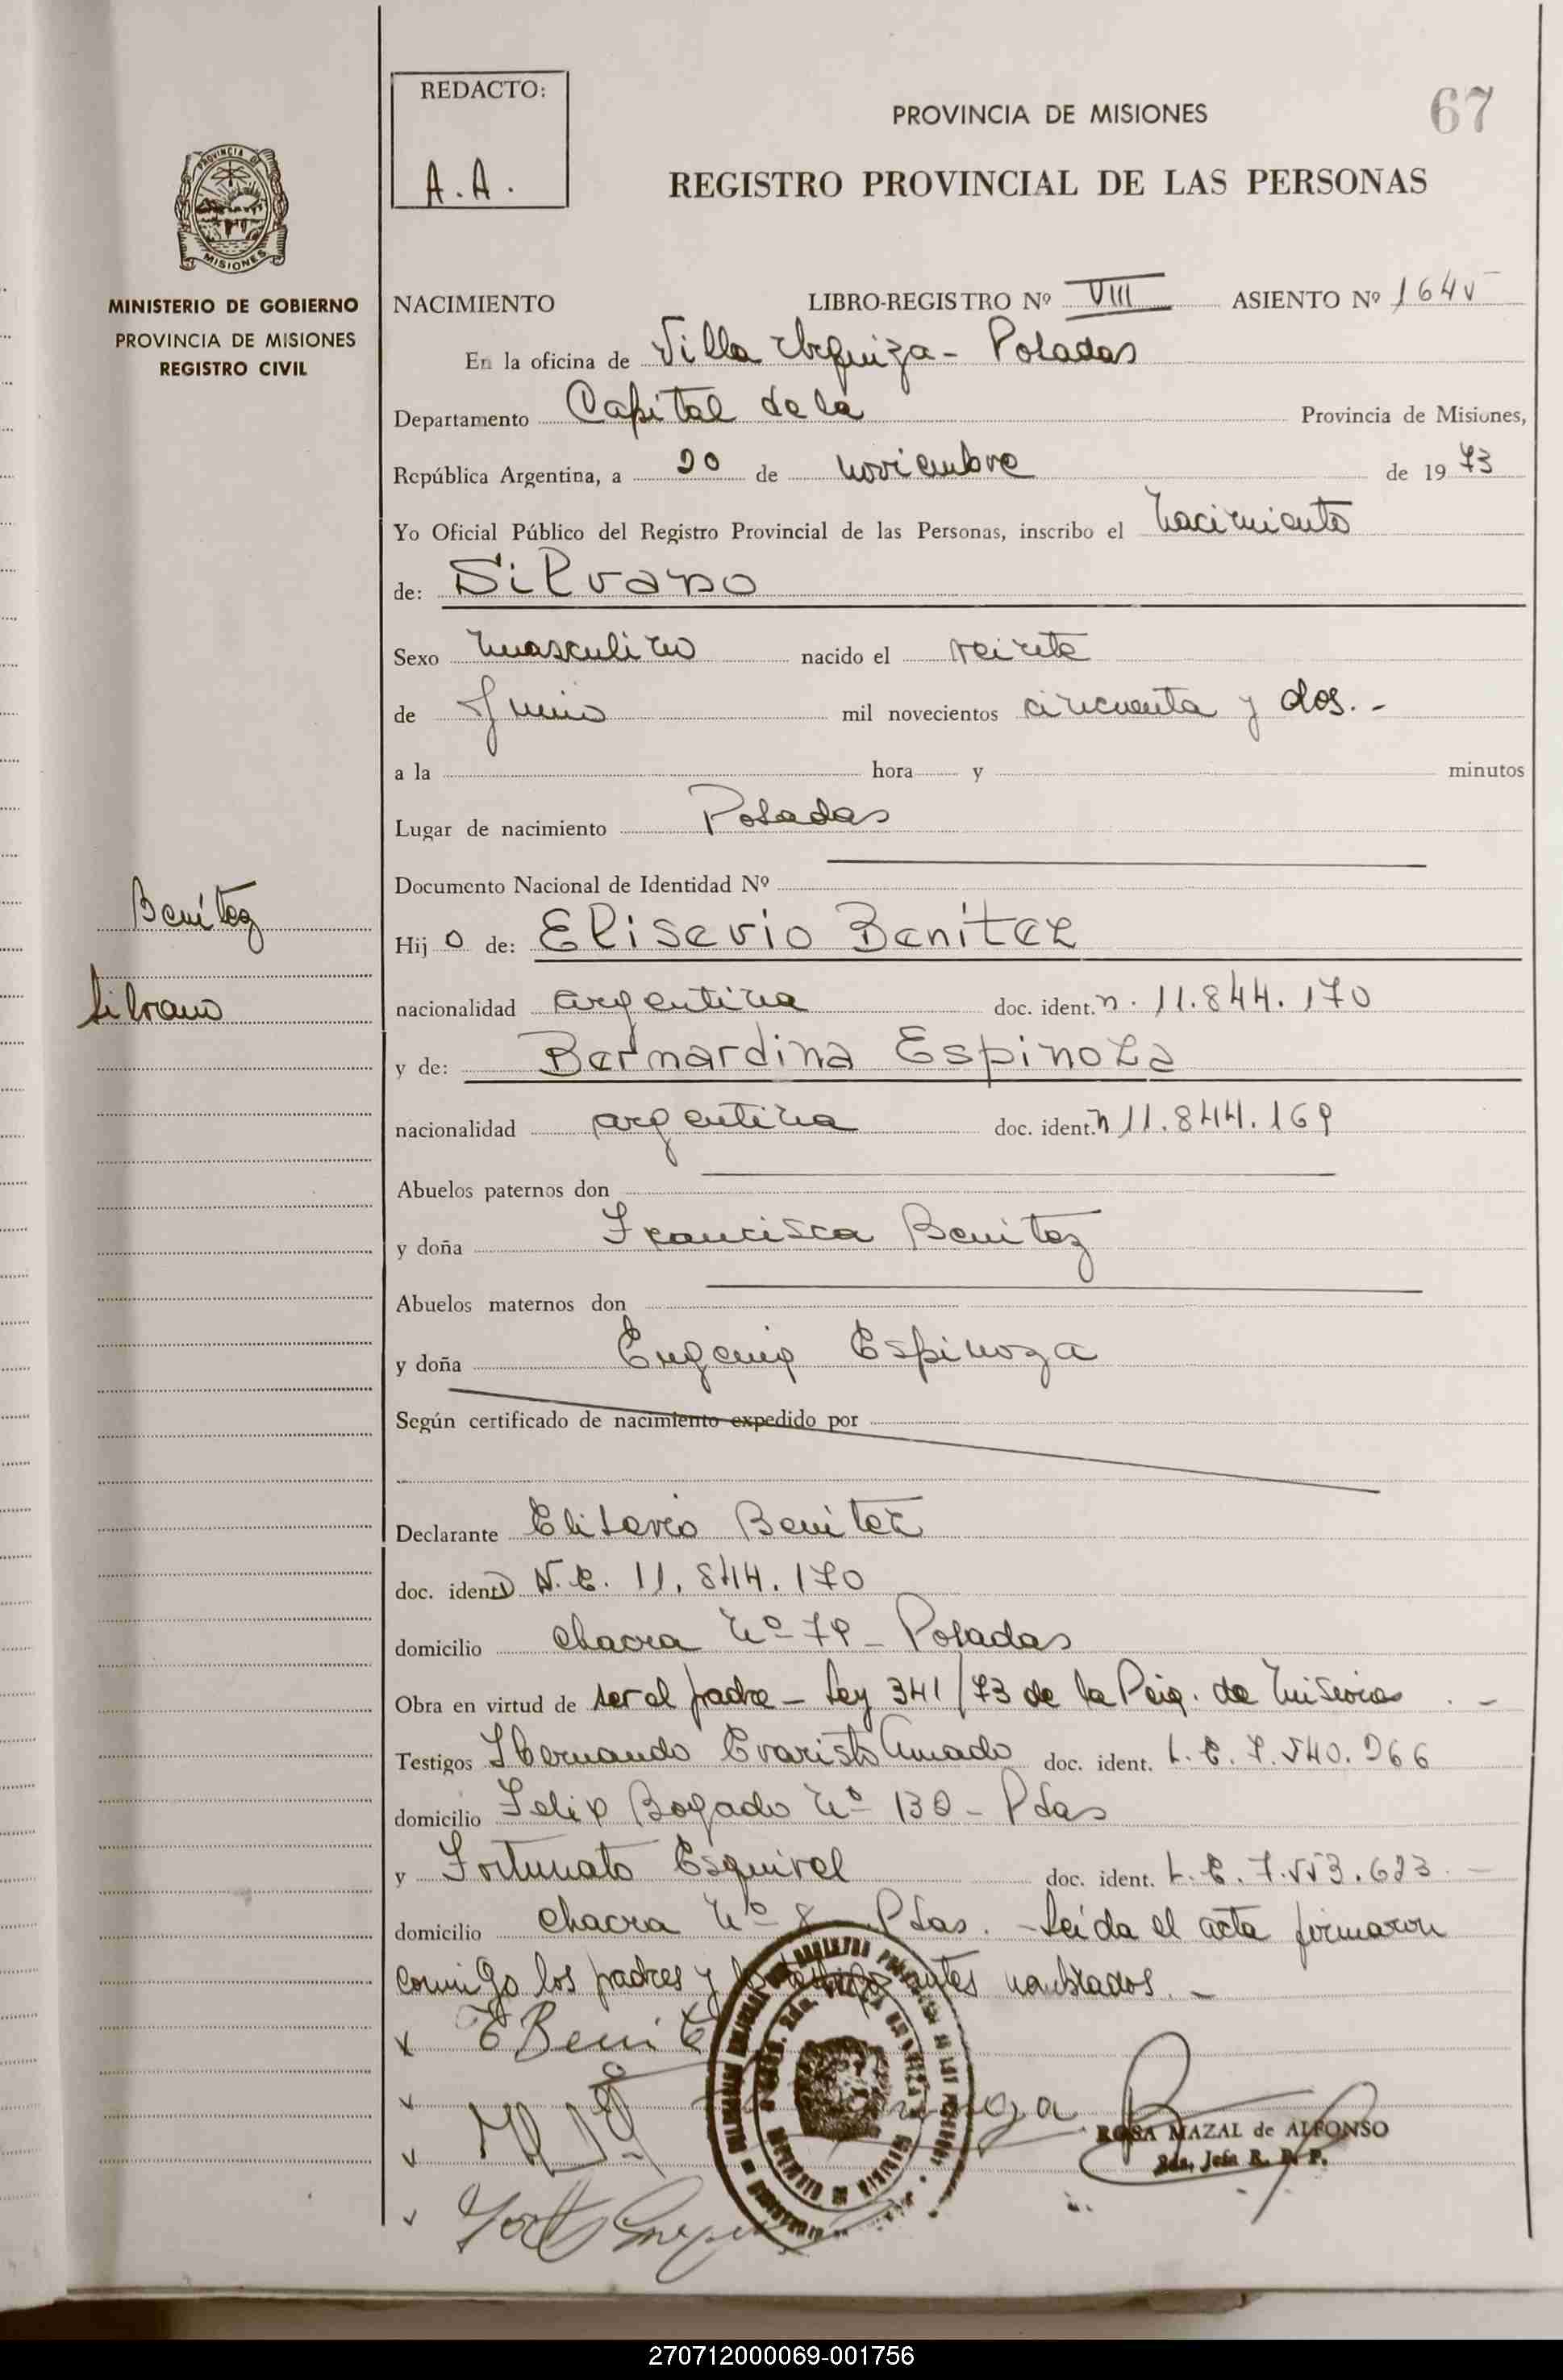 REDACTO:
A.A.
67
PROVINCIA DE MISIONES
REGISTRO PROVINCIAL DE LAS PERSONAS
PROVINCIA DE
MISIONES
MINISTERIO DE GOBIERNO
PROVINCIA DE MISIONES
REGISTRO CIVIL
NACIMIENTO LIBRO-REGISTRO Nº VIII ASIENTO Nº 1645
En la oficina de Villa Urquiza - Posadas
Departamento Capital de la Provincia de Misiones,
República Argentina, a 20 de noviembre de 1973
Yo Oficial Público del Registro Provincial de las Personas, inscribo el nacimiento
de: Silvano
Sexo masculino nacido el veinte
de Junio mil novecientos cincuenta y dos.-
a la hora y minutos
Lugar de nacimiento Posadas
Documento Nacional de Identidad Nº
Benítez
Silvano
Hijo de: Elisevio Benítez
nacionalidad argentina doc. ident. n. 11.844.170
y de: Bernardina Espinoza
nacionalidad argentina doc. ident. n 11.844.169
Abuelos paternos don
y doña Francisca Benítez
Abuelos maternos don
y doña Eugenia Espinoza
Según certificado de nacimiento expedido por
Declarante Elisevio Benítez
doc. ident D.N.I. 11.844.170
domicilio chacra nº 79 - Posadas
Obra en virtud de ser el padre - Ley 341/73 de la Pcia. de Misiones . -
Testigos Hernando Evaristo Amado doc. ident. L.E. 7.540.266
domicilio Felix Bogado nº 130 - Pdas
y Fortunato Esquivel doc. ident. L.E. 7.553.623. -
domicilio chacra nº 8 Pdas. - Leída el acta firmaron
conmigo los padres y los testigos antes nombrados. -
x E Benite
ROSA MAZAL de ALFONSO
Jefa R. P. P.
270712000069-001756